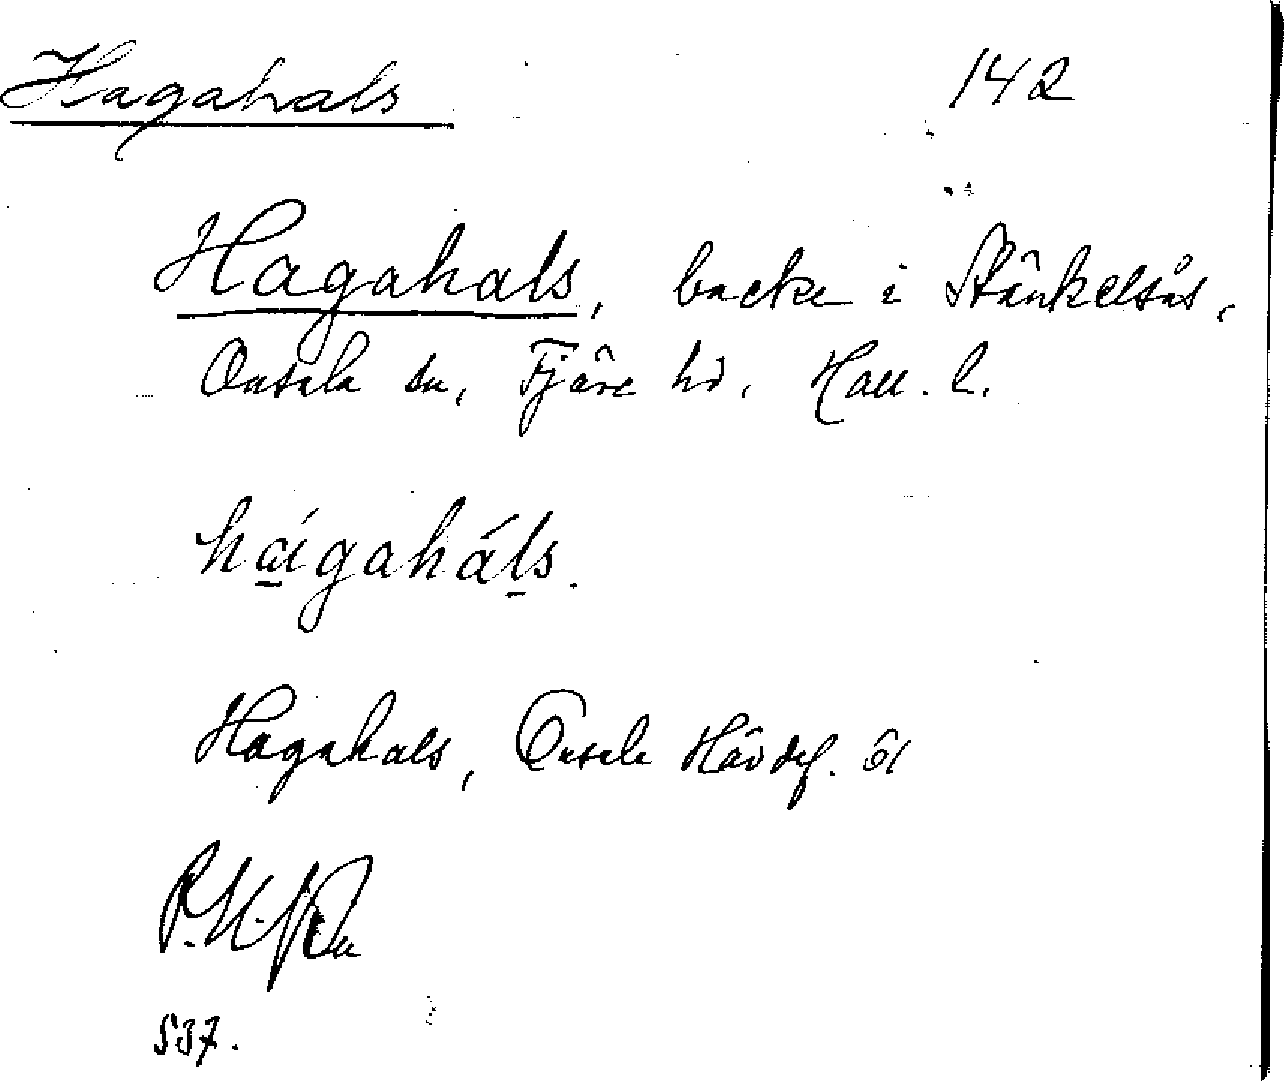 Hagahals 142
Hagahals, backe i Stånkelsås,
Onsala sn, Fjäre hd, Hall. l.
háigaháls.
Hagahals, Onsala Hävdef. 61
537.